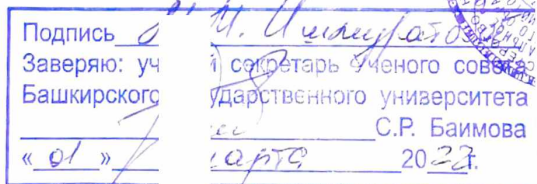 Подпись
Заверяю: уч й секретарь Ученого совета
Башкирског ударственного университета
С.Р. Баимова
« 01 » марта 2022г.